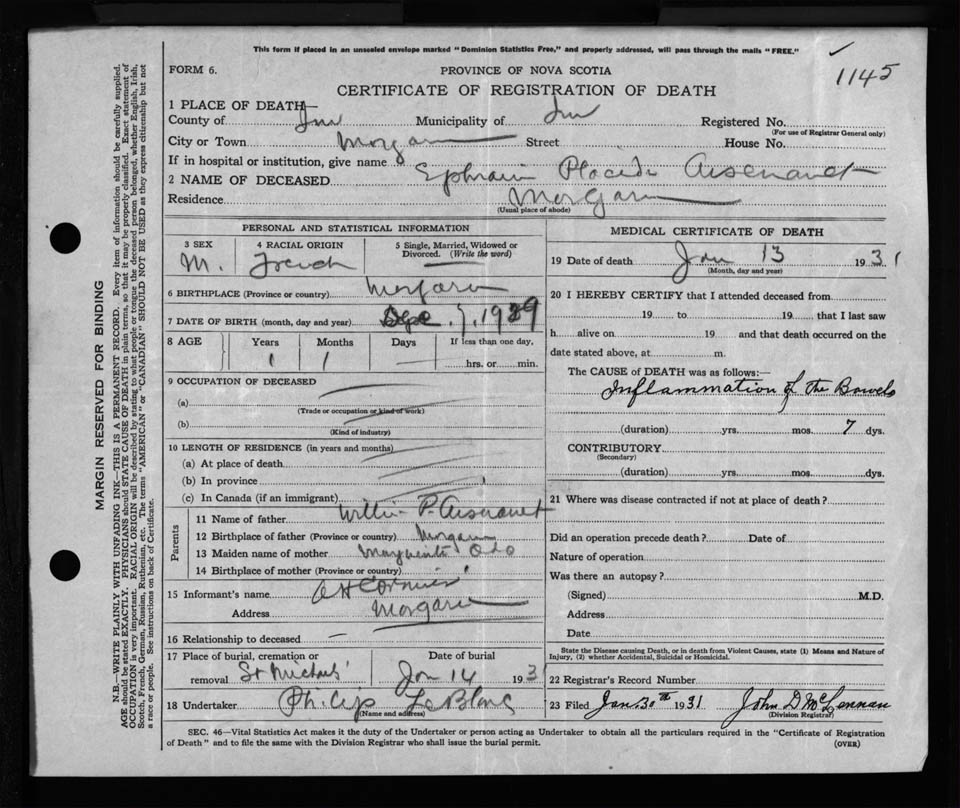 This form if placed in an unsealed envelope marked "Dominion Statistics Free," and properly addressed, will pass through the mails "FREE."
1145
FORM 6.
PROVINCE OF NOVA SCOTIA
CERTIFICATE OF REGISTRATION OF DEATH
1 PLACE OF DEATH—
County of Inv Municipality of Inv Registered No.
(For use of Registrar General only)
City or Town Margaree Street House No.
If in hospital or institution, give name
2 NAME OF DECEASED Ephraim Placide Arsenault
Residence Margaree
(Usual place of abode)
PERSONAL AND STATISTICAL INFORMATION
3 SEX 4 RACIAL ORIGIN 5 Single, Married, Widowed or Divorced. (Write the word)
M. French
6 BIRTHPLACE (Province or country) Margaree
7 DATE OF BIRTH (month, day and year) 7, 1929
8 AGE Years Months Days If less than one day.
1 1 hrs. or min.
9 OCCUPATION OF DECEASED
(a)
(Trade or occupation or kind of work)
(b)
(Kind of industry)
10 LENGTH OF RESIDENCE (in years and months)
(a) At place of death
(b) In province
(c) In Canada (if an immigrant)
Parents
11 Name of father P. Arsenault
12 Birthplace of father (Province or country) Margaree
13 Maiden name of mother
14 Birthplace of mother (Province or country)
15 Informant's name A H Cormier
Address Margaree
16 Relationship to deceased —
17 Place of burial, cremation or removal St Michael's
Date of burial
Jan 14 1931
18 Undertaker Philip LeBlanc
(Name and address)
MEDICAL CERTIFICATE OF DEATH
19 Date of death Jan 13 1931
(Month, day and year)
20 I HEREBY CERTIFY that I attended deceased from
19 to 19 that I last saw
h alive on 19 and that death occurred on the
date stated above, at m.
The CAUSE of DEATH was as follows:—
Inflammation of the Bowels
(duration) yrs. mos. 7 dys.
CONTRIBUTORY
(Secondary)
(duration) yrs. mos. dys.
21 Where was disease contracted if not at place of death?
Did an operation precede death? Date of
Nature of operation
Was there an autopsy?
(Signed) M.D.
Address
Date
State the Disease causing Death, or in death from Violent Causes, state (1) Means and Nature of
Injury, (2) whether Accidental, Suicidal or Homicidal.
22 Registrar's Record Number
23 Filed Jan. 30th 1931 John D McLennan
(Division Registrar)
SEC. 46—Vital Statistics Act makes it the duty of the Undertaker or person acting as Undertaker to obtain all the particulars required in the "Certificate of Registration
of Death" and to file the same with the Division Registrar who shall issue the burial permit. (OVER)
MARGIN RESERVED FOR BINDING
N.B.—WRITE PLAINLY WITH UNFADING INK—THIS IS A PERMANENT RECORD. Every item of information should be carefully supplied.
AGE should be stated EXACTLY. PHYSICIANS should STATE CAUSE OF DEATH in plain terms, so that it may be properly classified. Exact statement of
OCCUPATION is very important. RACIAL ORIGIN will be described by stating to what people or tongue the deceased person belonged, whether English, Irish,
Scotch, French, German, Russian, Ruthenian, etc. The terms "AMERICAN" or "CANADIAN" SHOULD NOT BE USED as they express citizenship but not
a race or people. See instructions on back of Certificate.